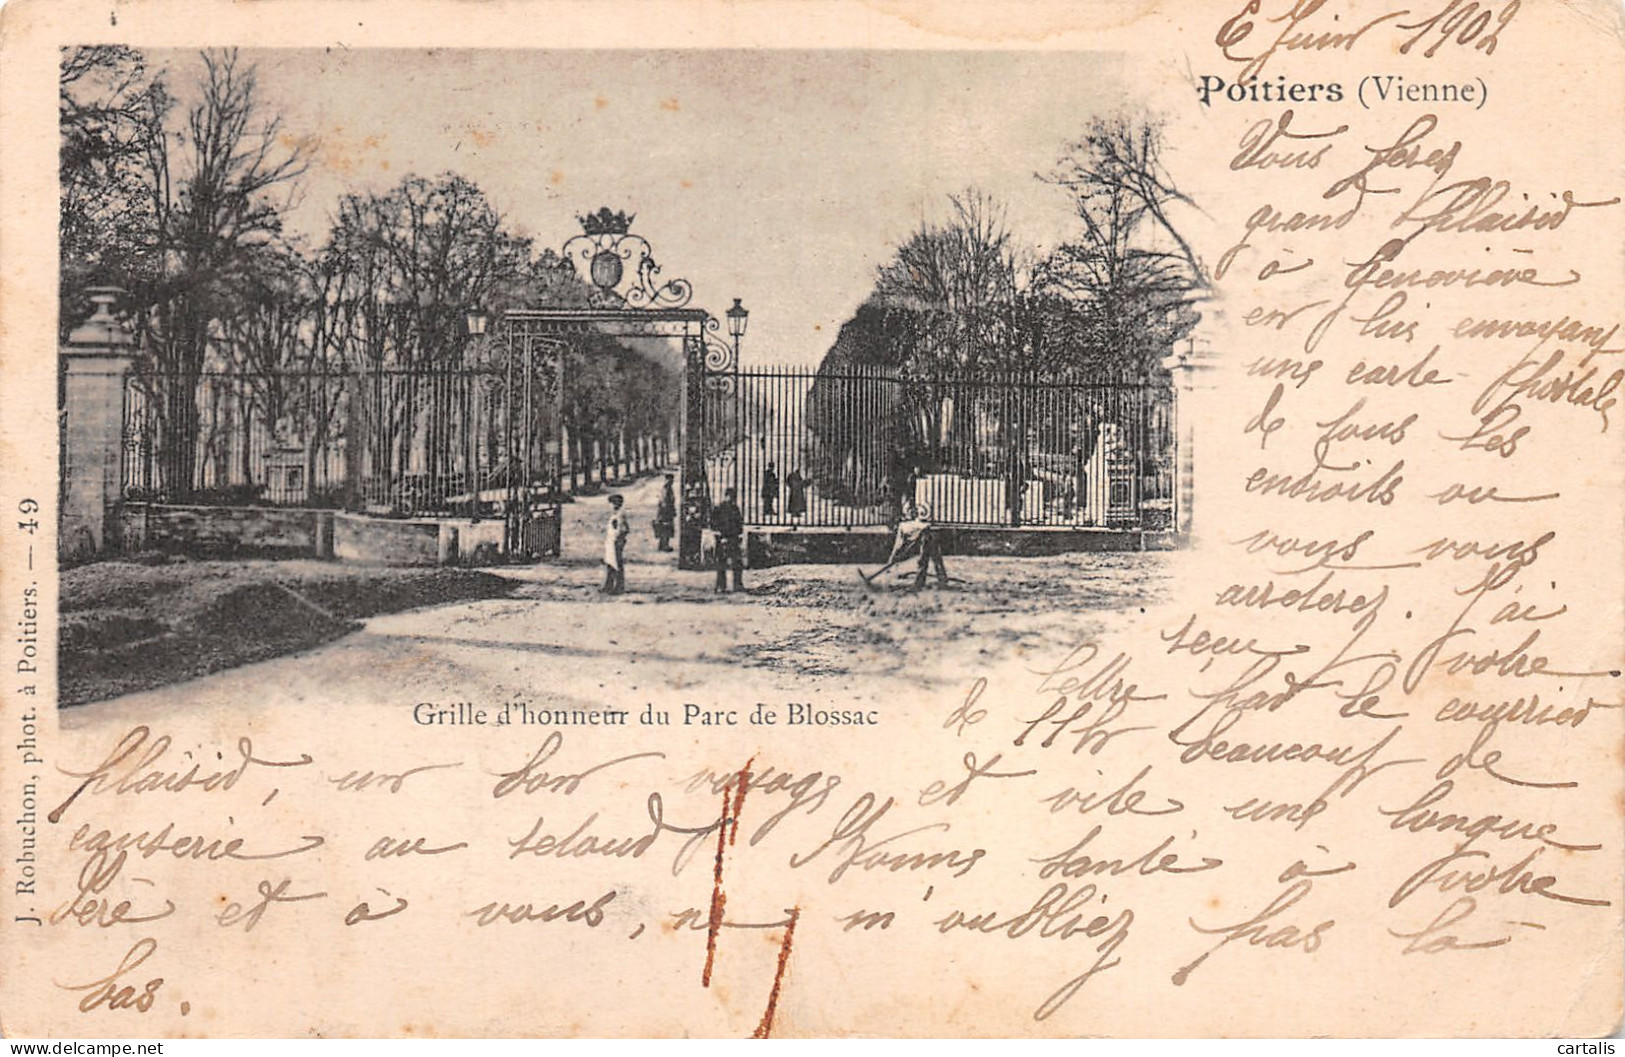 6 Juin 1902
Poitiers (Vienne)
Vous ferez
grand plaisir
à Geneviève
en lui envoyant
une carte postale
de tous les
endroits ou
vous vous
arreterez. J'ai
reçu votre
lettre par le courrier
de 11h beaucoup de
plaisir, un bon voyage et vite une longue
causerie au retour. Bonne santé à votre
Père et à vous, ne m'oubliez pas là
bas.
Grille d'honneur du Parc de Blossac
J. Robuchon, phot. à Poitiers. — 49
delcampe.net
cartalis